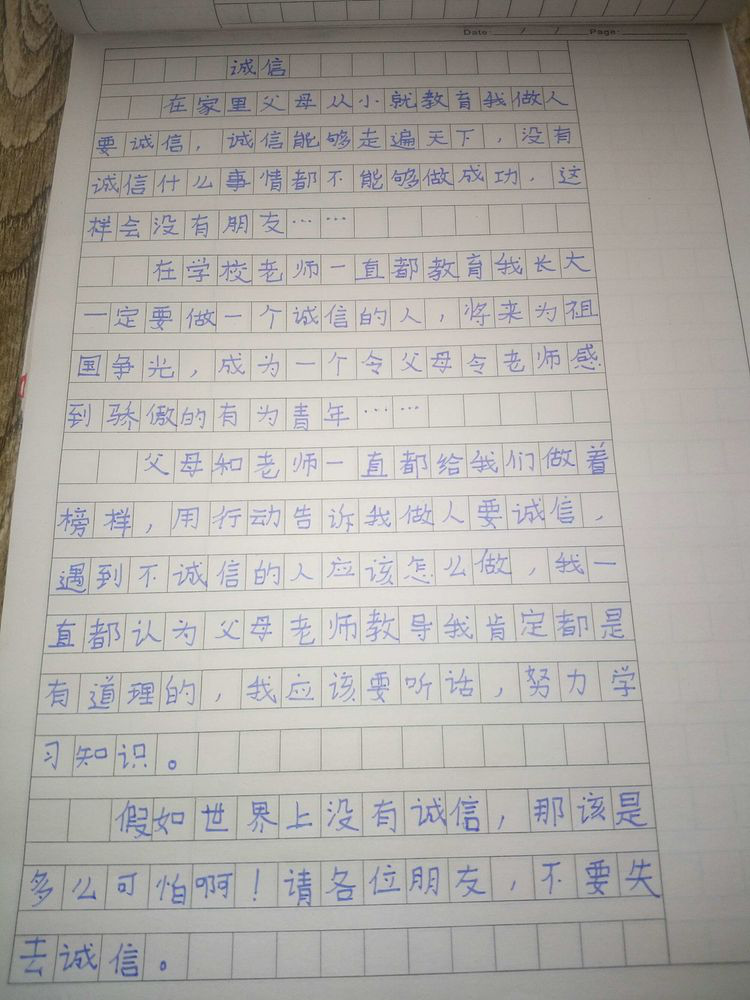 Date: / / Page:
诚信
在家里父母从小就教育我做人
要诚信，诚信能够走遍天下，没有
诚信什么事情都不能够做成功，这
样会没有朋友……
在学校老师一直都教育我长大
一定要做一个诚信的人，将来为祖
国争光，成为一个令父母令老师感
到骄傲的有为青年……
父母和老师一直都给我们做着
榜样，用行动告诉我做人要诚信，
遇到不诚信的人应该怎么做，我一
直都认为父母老师教导我肯定都是
有道理的，我应该要听话，努力学
习知识。
假如世界上没有诚信，那该是
多么可怕啊！请各位朋友，不要失
去诚信。